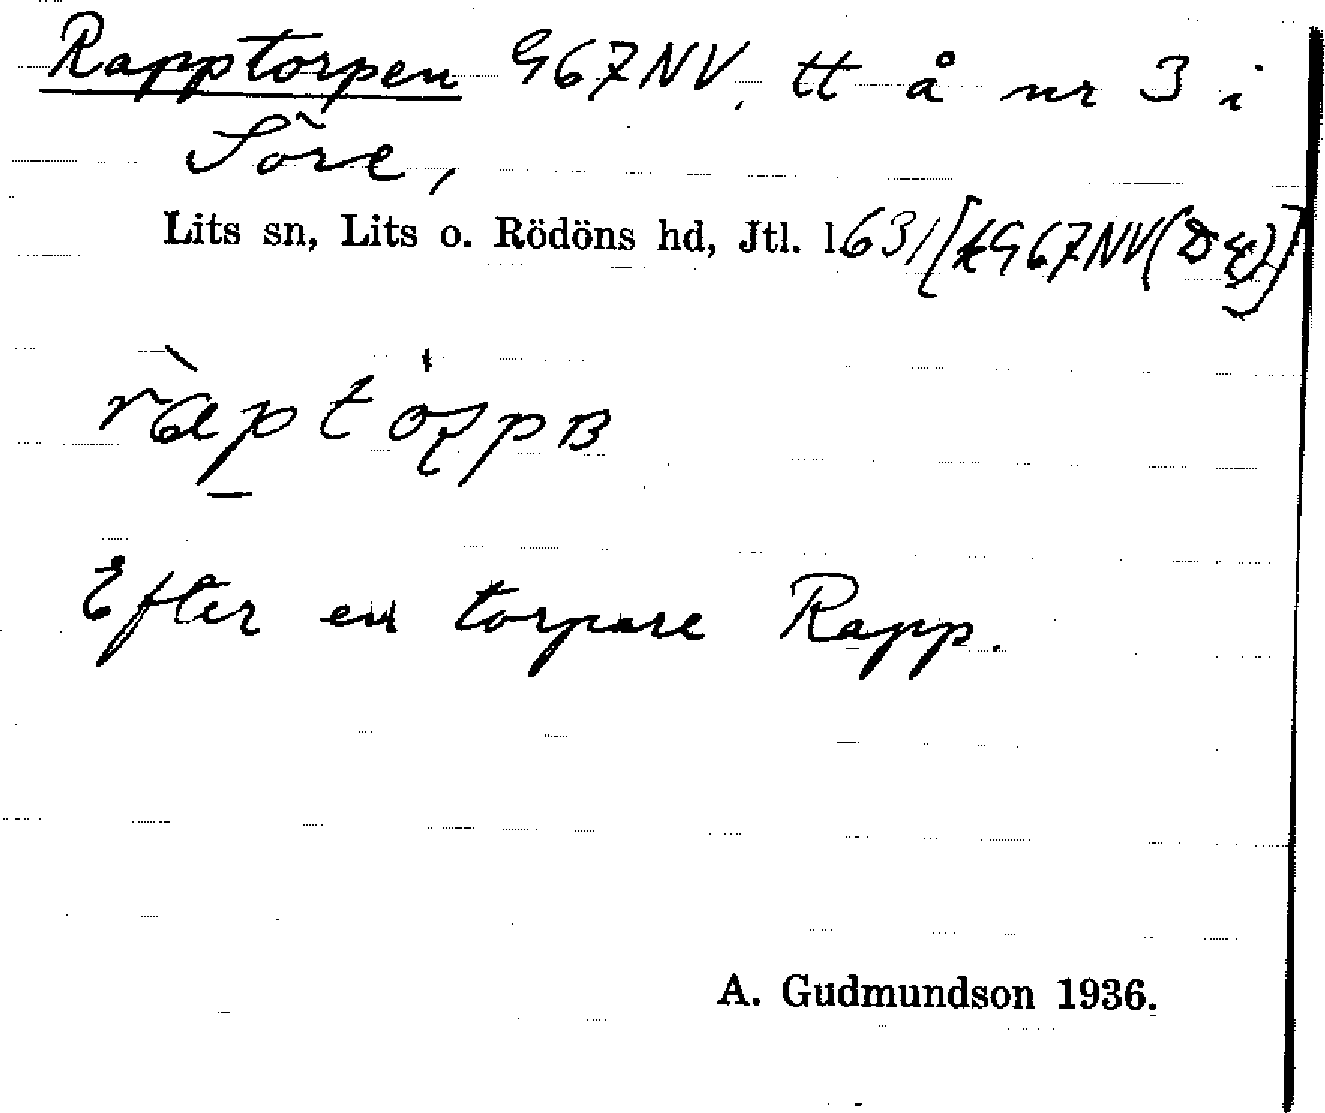 Rapptorpen G67NV, tt å nr 3 i
Söre,
Lits sn, Lits o. Rödöns hd, Jtl. l. 631
Efter en torpare Rapp.
A. Gudmundson 1936.